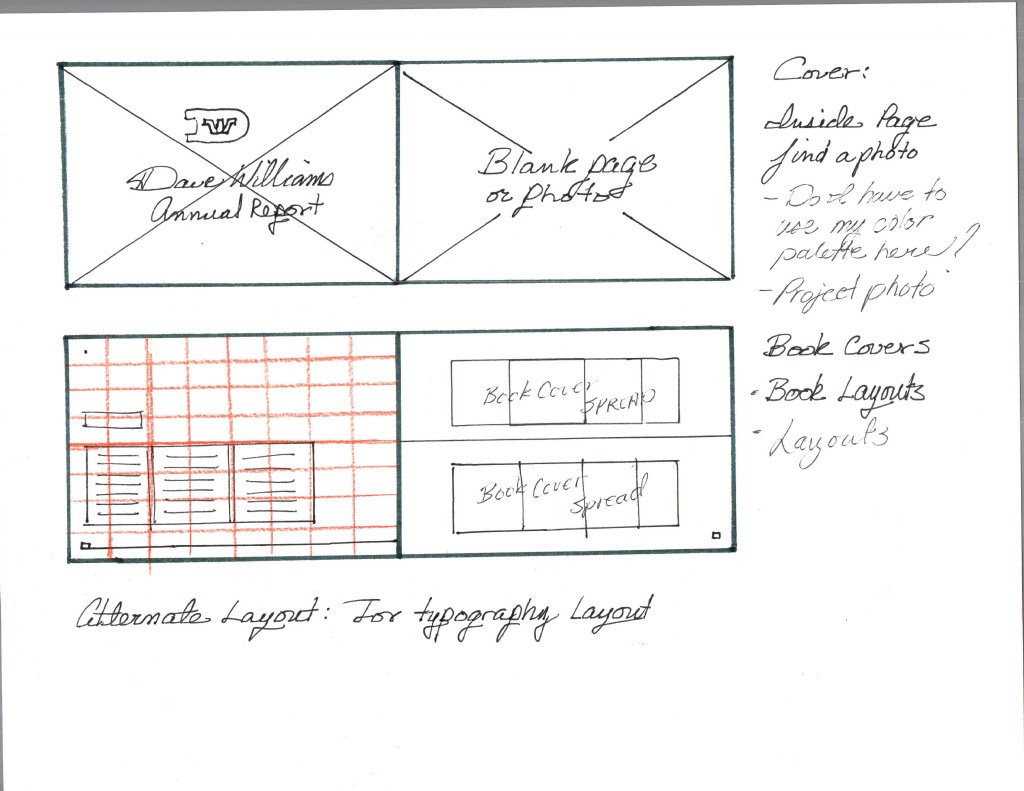 W
Dave Williams
Annual Report
Blank page
or photos
Cover:
Inside Page
find a photo
- Do I have to
use my color
palette here?
- Project photo
Book Covers
- Book Layouts
- Layouts
Book Cover
SPREAD
Book Cover
Spread
Alternate Layout: For typography Layout